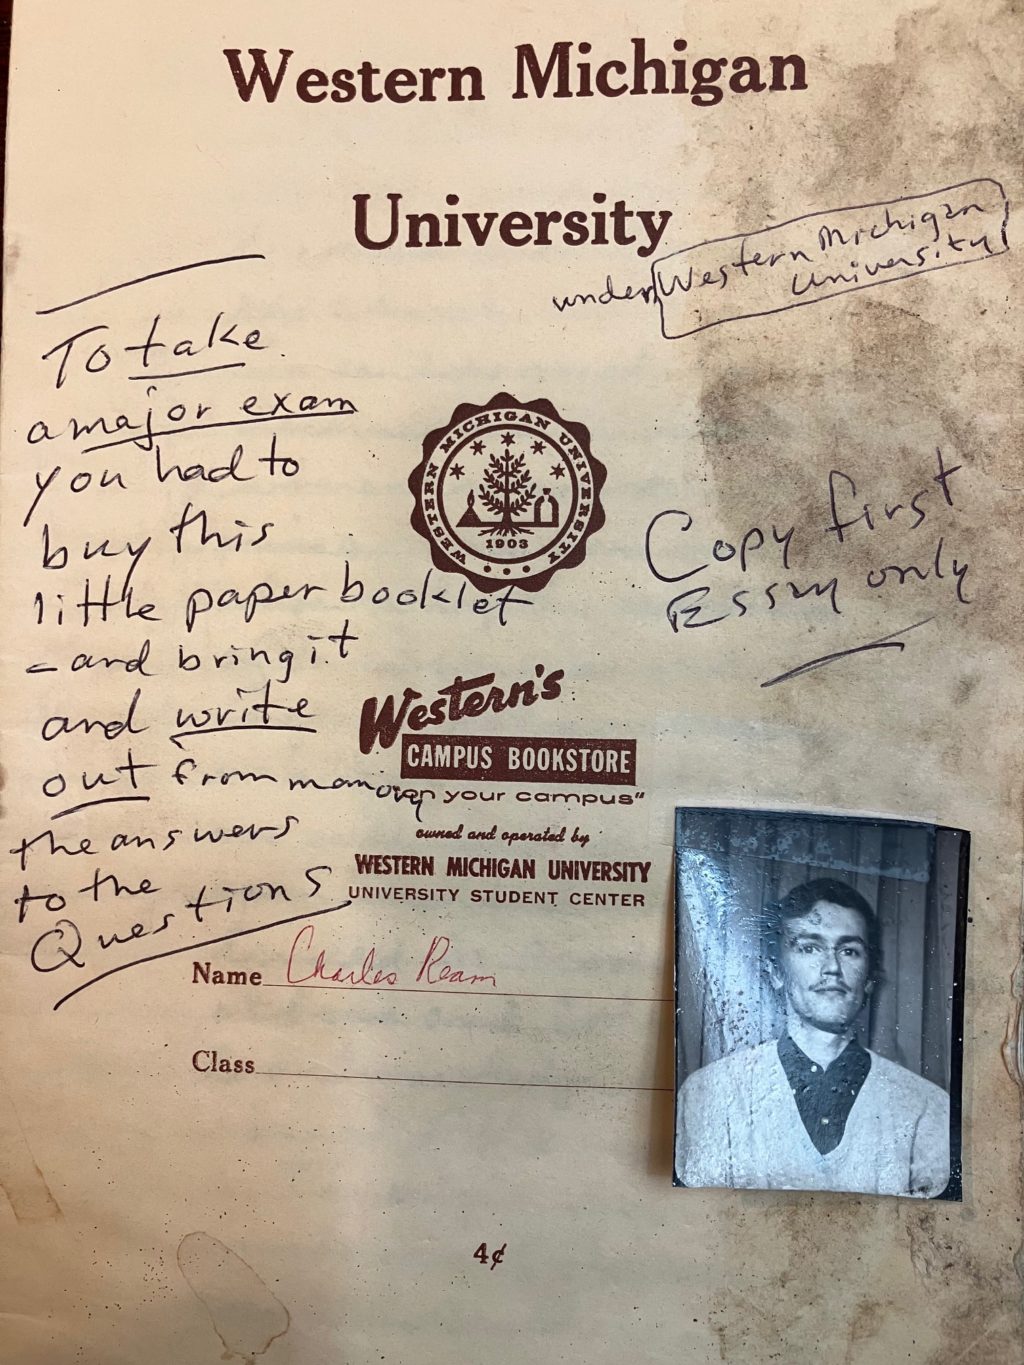 Western Michigan
University
under Western Michigan
University
To take
a major exam
you had to
buy this
little paper booklet
- and bring it
and write
out from mamory
the answers
to the
Questions
WESTERN MICHIGAN UNIVERSITY
1903
Copy first
Essay only
Western's
CAMPUS BOOKSTORE
on your campus"
owned and operated by
WESTERN MICHIGAN UNIVERSITY
UNIVERSITY STUDENT CENTER
Name Charles Ream
Class
4¢